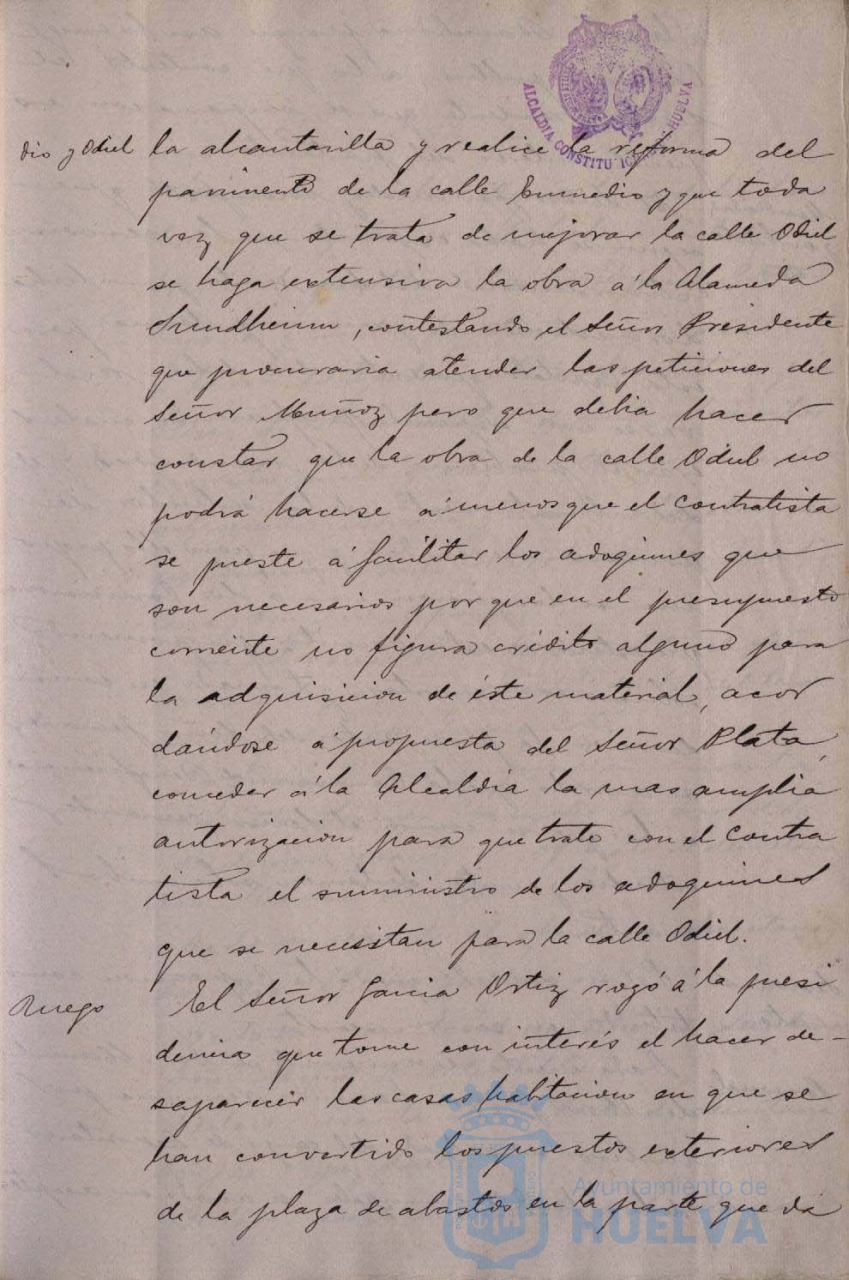 ALCALDIA CONSTITU HUELVA
dio y Odiel
la alcantarilla y realice la reforma del
pavimento de la calle Enmedio y que toda
vez que se trata de mejorar la calle Odiel
se haga extensiva la obra á la Alameda
Sundheinn, contestando el Señor Presidente
que procuraria atender las peticiones del
Señor Muñoz pero que debia hacer
constar que la obra de la calle Odiel no
podrá hacerse á menos que el contratista
se preste á facilitar los adoquines que
son necesarios por que en el presupuesto
corriente no figura crédito alguno para
la adquisicion de éste material, acor
dándose á propuesta del Señor Plata,
conceder á la Alcaldia la mas amplia
autorizacion para que trate con el contra
tista el suministro de los adoquines
que se necesitan para la calle Odiel.
Ruego
El Señor Garcia Ortiz rogó á la presi
dencia que tome con interés el hacer de-
saparecer las casas habitacion en que se
han convertido los puestos exteriores
de la plaza de abastos en la parte que dá
Ayuntamiento de
HUELVA